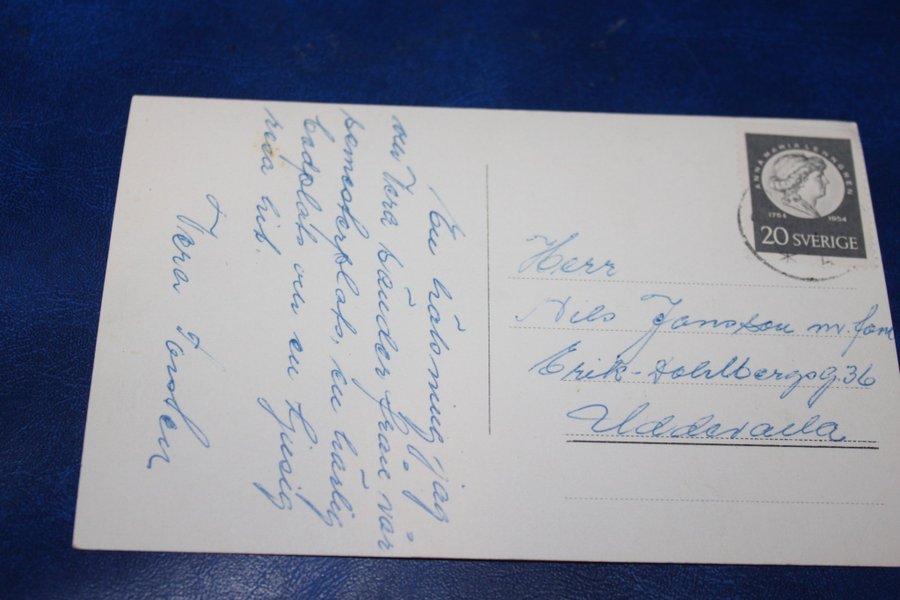 En hälsning jag
och Vera sänder från vår
semesterplats, en härlig
badplats och en tjusig
resa hit.
Vera Torsten
ANNA MARIA LENNGREN
1754 1954
20 SVERIGE
Herr
Nils Jansson m. fam
Erik-Dahlbergsg. 36
Uddevalla